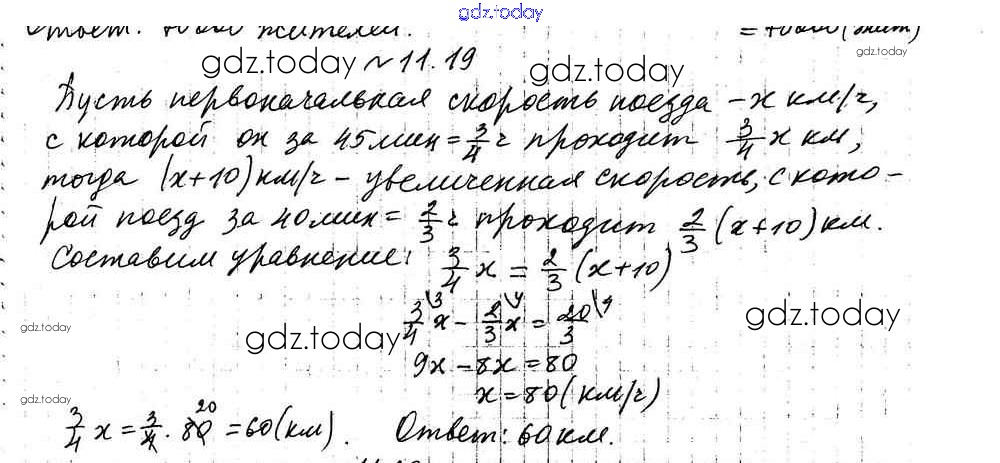 gdz.today
Ответ: 40000 жителей.
= 40000 (жит)
gdz.today
gdz.today №11.19
gdz.today
Пусть первоначальная скорость поезда - x км/ч,
с которой он за 45 мин = 3/4 ч проходит 3/4 x км,
тогда (x+10) км/ч - увеличенная скорость, с кото-
рой поезд за 40 мин = 2/3 ч проходит 2/3 (x+10) км.
Составим уравнение: 3/4 x = 2/3 (x+10)
gdz.today
gdz.today
gdz.today
3/4\3 x - 2/3\4 x = 20/3\4
9x - 8x = 80
x = 80 (км/ч)
gdz.today
3/4 x = 3/4 · 80 20 = 60 (км). Ответ: 60 км.